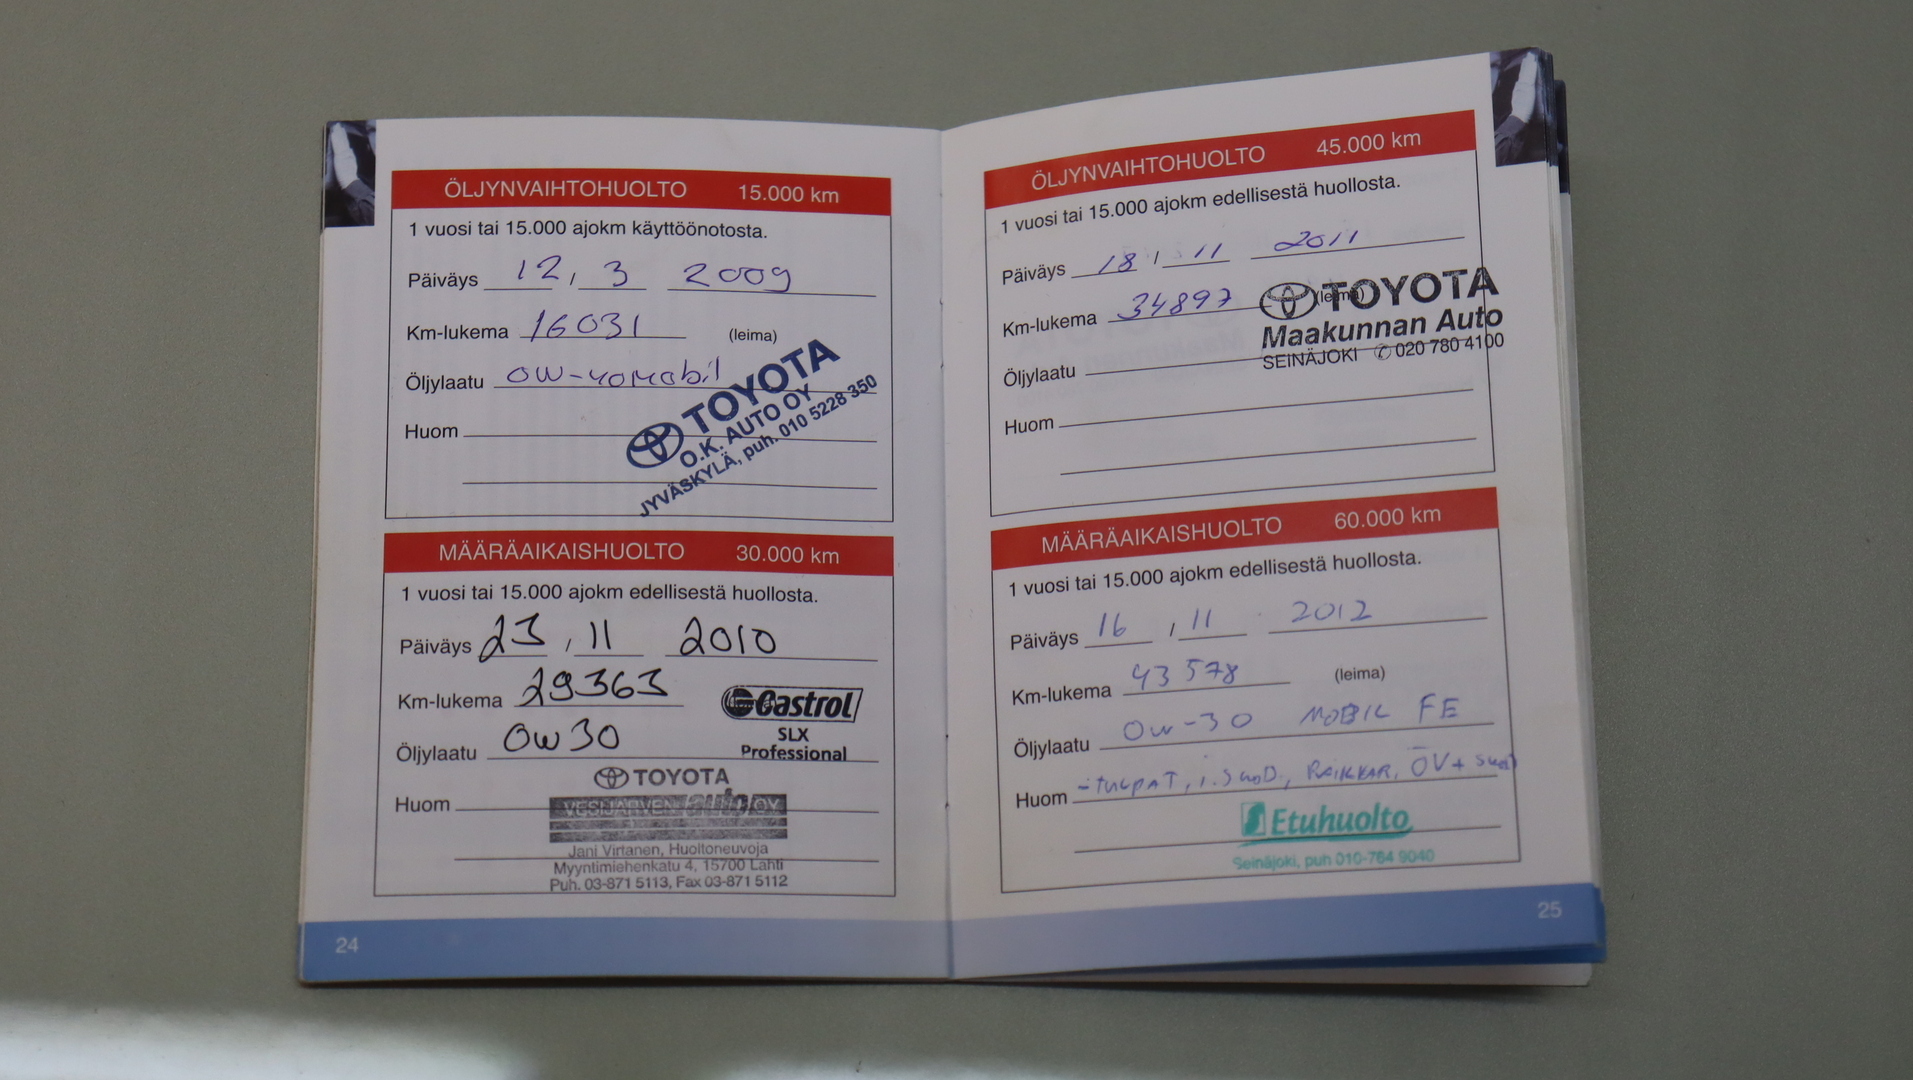 ÖLJYNVAIHTOHUOLTO 15.000 km
1 vuosi tai 15.000 ajokm käyttöönotosta.
Päiväys 12 / 3 2009
Km-lukema 16031 (leima)
Öljylaatu 0W-40 Mobil
Huom
TOYOTA
O.K. AUTO OY
JYVÄSKYLÄ, puh. 010 5228 350
MÄÄRÄAIKAISHUOLTO 30.000 km
1 vuosi tai 15.000 ajokm edellisestä huollosta.
Päiväys 23 / 11 2010
Km-lukema 29363
Castrol
SLX
Professional
Öljylaatu 0W30
Huom
TOYOTA
VESIJÄRVEN auto OY
Jani Virtanen, Huoltoneuvoja
Myyntimiehenkatu 4, 15700 Lahti
Puh. 03-871 5113, Fax 03-871 5112
24
ÖLJYNVAIHTOHUOLTO 45.000 km
1 vuosi tai 15.000 ajokm edellisestä huollosta.
Päiväys 18 / 11 2011
Km-lukema 34897 (leima)
TOYOTA
Maakunnan Auto
SEINÄJOKI ✆ 020 780 4100
Öljylaatu
Huom
MÄÄRÄAIKAISHUOLTO 60.000 km
1 vuosi tai 15.000 ajokm edellisestä huollosta.
Päiväys 16 / 11 2012
Km-lukema 43578 (leima)
Öljylaatu 0W-30 MOBIL FE
Huom -TULPAT, i.SUOD., RAIKKAR, ÖV+
Etuhuolto
Seinäjoki, puh 010-764 9040
25